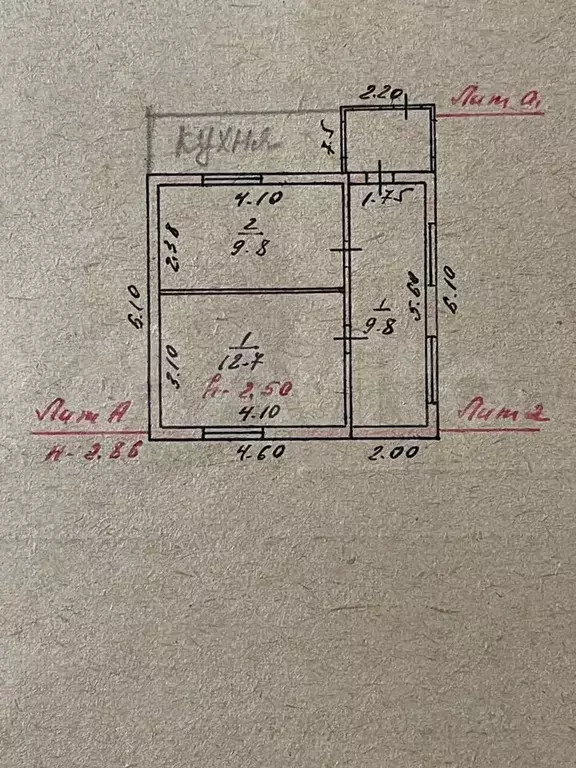 2.20
Лит а₁
КУХНЯ
4.10
1.75
2
9.8
2.38
6.10
5.60
6.10
1
9.8
1
12.7
3.10
h- 2.50
4.10
Лит А
Лит
н- 2.86
4.60
2.00